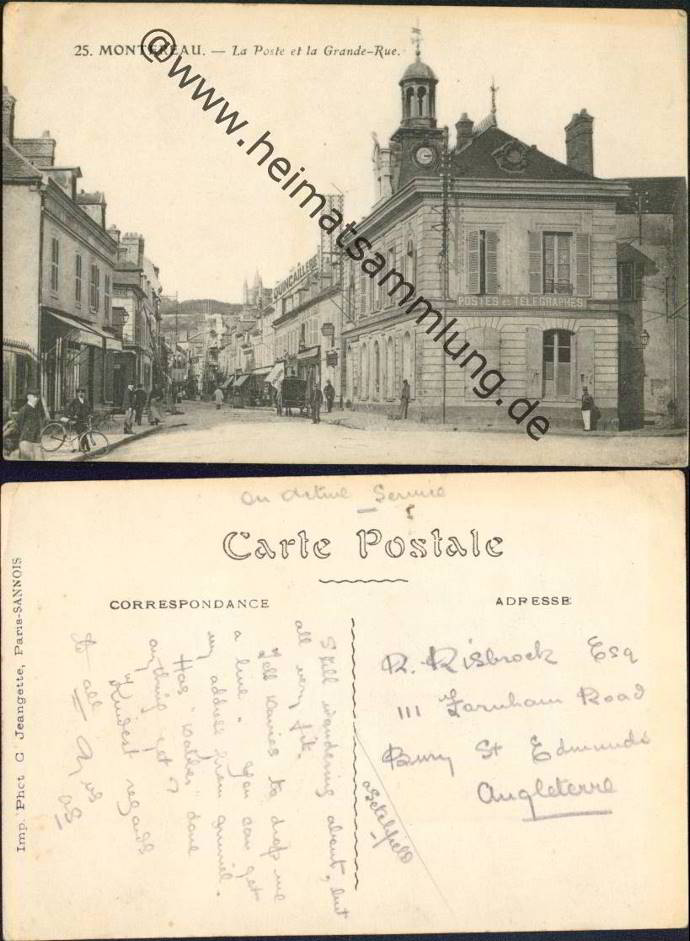 25. MONTEREAU. — La Poste et la Grande-Rue.
@www.heimatsammlung.de
POSTES et TÉLÉGRAPHES
On Active Service
Carte Postale
CORRESPONDANCE
ADRESSE
Imp. Phot. C. Jeangette, Paris-SANNOIS
Still wandering about, but
all very fit.
Tell Davies to drop me
a line. You can get
my address from
Has Walker done
anything yet?
Kindest regards
to all
R. Risbrock Esq
111 Farnham Road
Bury St Edmunds
Angleterre